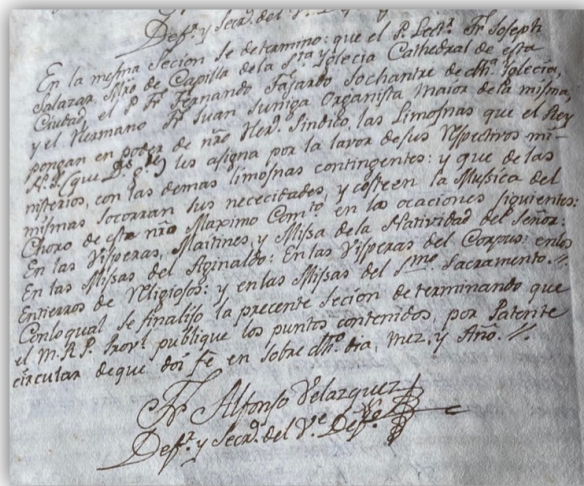 Deff.r y Secr.o del V.e D
En la mesma Secion se determino: que el P. Lect.r Fr Joseph
Salazar Mro de Capilla de la Sta Iglecia Cathedral de esta
Ciudad, el P. Fr Fernando Fajardo Sochantre de dha Iglecia,
y el Hermano Fr Juan Suniga Organista maior de la misma,
pongan en poder de nro Her.o Sindico, las Limosnas que el Rey
N. S. (que D.s g.e) les asigna por la lavor de sus respectivos mi-
nisterios, con las demas limosnas contingentes: y que de las
mismas socorran sus nececidades, y costeen la Mussica del
Choro de este nro Maximo Com.to en las ocaciones siguientes:
En las Visperas, Maitines, y Missa de la Natividad del Señor:
En las Missas del Aginaldo: En las Visperas del Corpus: en los
Entierros de Religiosos: y en las Missas del Smo Sacramento. //.
Con lo qual se finaliso la precente Secion determinando que
el M. R. P. Prov.l publique los puntos contenidos, por Patente
circular de que doi fe en sobre dho dia, mez, y Año. //.
Fr Alfonso Velazquez
Deff.r y Secr.o del V.e Deff.o